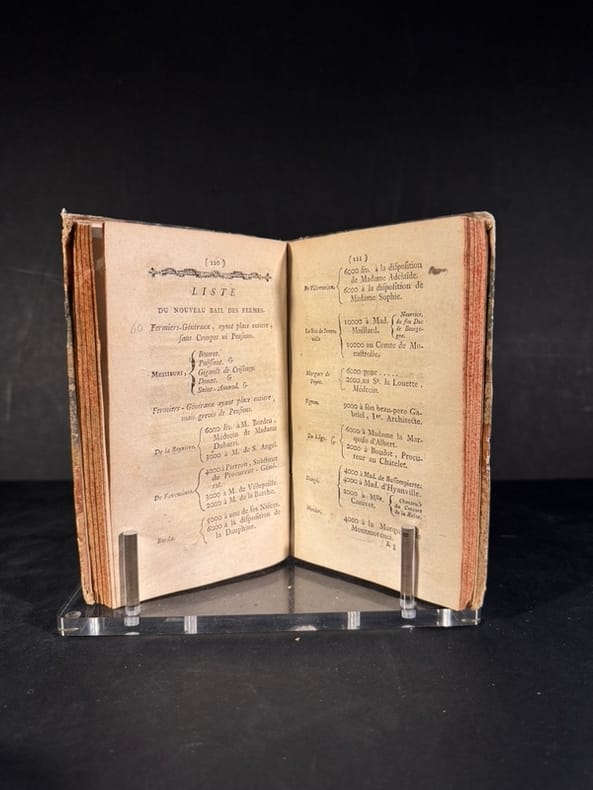 ( 120 )
LISTE
DU NOUVEAU BAIL DES FERMES.
60 Fermiers-Généraux, ayant place entiere,
sans Croupes ni Pensions.
MESSIEURS,
Bouret.
Puissant. G
Gigault de Crisenoy.
Douet. G
Saint-Amand. G
Fermiers-Généraux ayant place entiere,
mais grevés de Pensions.
De la Reyniere,
6000 liv. à M. Bordeu,
Médecin de Madame
Dubarri.
3000 à M. de S. Angel.
De
4000 à Pierron, Substitut
du Procureur-Géné-
ral.
3000 à M. de Villepaille.
2000 à M. de la Barthe.
Borda.
5000 à une de ses Nieces.
6000 à la disposition de
la Dauphine.
( 121 )
De
6000 liv. à la disposition
de Madame Adelaïde.
6000 à la disposition de
Madame Sophie.
10000 à Mad.
Maillard.
Nourrice,
du feu Duc
de Bourgo-
gne.
10000 au Comte de Mo-
Marquet de
6000 pour . . . . .
2000 au Sr. la Louette,
Médecin.
5000 à son beau-pere Ga-
briel, 1er. Architecte.
6000 à Madame la Mar-
quise d'Albert.
2000 à Boudot, Procu-
reur au Châtelet.
4000 à Mad. de Bassompierre.
4000 à Mad. d'Hyanville.
2000 à Mlle.
Canavet.
Chanteuse
du Concert
de la Reine.
4000 à la Marqu
Montmorenci.